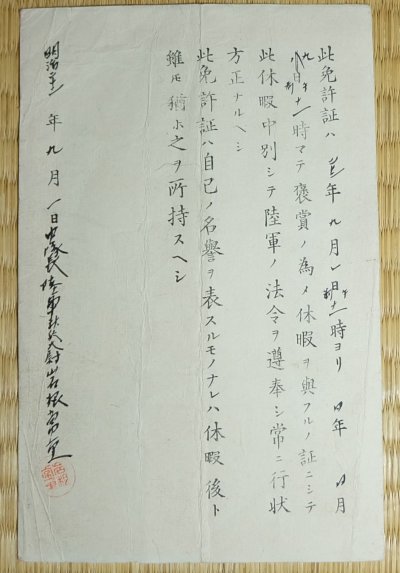 此免許証ハ 年九月一日午前十一時ヨリ 同年 同月
九日午前十一時マテ褒賞ノ為メ休暇ヲ與フルノ証ニシテ
此休暇中別シテ陸軍ノ法令ヲ遵奉シ常ニ行状
方正ナルヘシ
此免許証ハ自己ノ名誉ヲ表スルモノナレハ休暇後ト
雖モ猶ホ之ヲ所持スヘシ
明治 年九月一日中隊長陸軍歩兵大尉岩根